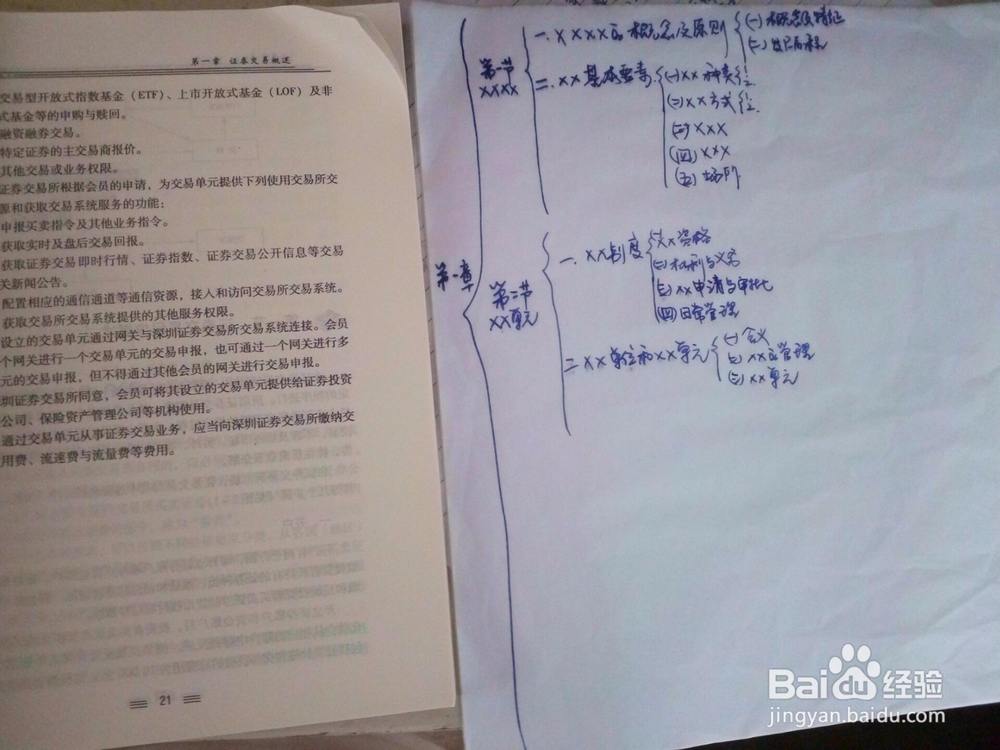 第一章 证券交易概述
交易型开放式指数基金（ETF）、上市开放式基金（LOF）及非
式基金等的申购与赎回。
融资融券交易。
特定证券的主交易商报价。
其他交易或业务权限。
证券交易所根据会员的申请，为交易单元提供下列使用交易所交
源和获取交易系统服务的功能：
申报买卖指令及其他业务指令。
获取实时及盘后交易回报。
获取证券交易即时行情、证券指数、证券交易公开信息等交易
关新闻公告。
配置相应的通信通道等通信资源，接入和访问交易所交易系统。
获取交易所交易系统提供的其他服务权限。
设立的交易单元通过网关与深圳证券交易所交易系统连接。会员
个网关进行一个交易单元的交易申报，也可通过一个网关进行多
元的交易申报，但不得通过其他会员的网关进行交易申报。
圳证券交易所同意，会员可将其设立的交易单元提供给证券投资
公司、保险资产管理公司等机构使用。
通过交易单元从事证券交易业务，应当向深圳证券交易所缴纳交
用费、流速费与流量费等费用。
21
第一章
第一节
XXXX
一. XXXX的概念及原则
(一)概念及特征
(二)发展历程
二. XX基本要素
(一)XX种类
(二)XX方式
(三)XXX
(四)XXX
(五)场所
第二节
XX单元
一. XX制度
XX资格
(二)权利与义务
(三)XX申请与审批
(四)日常管理
二 XX席位和XX单元
(一)含义
(二)XX的管理
(三)XX单元
Baidu经验
jingyan.baidu.com